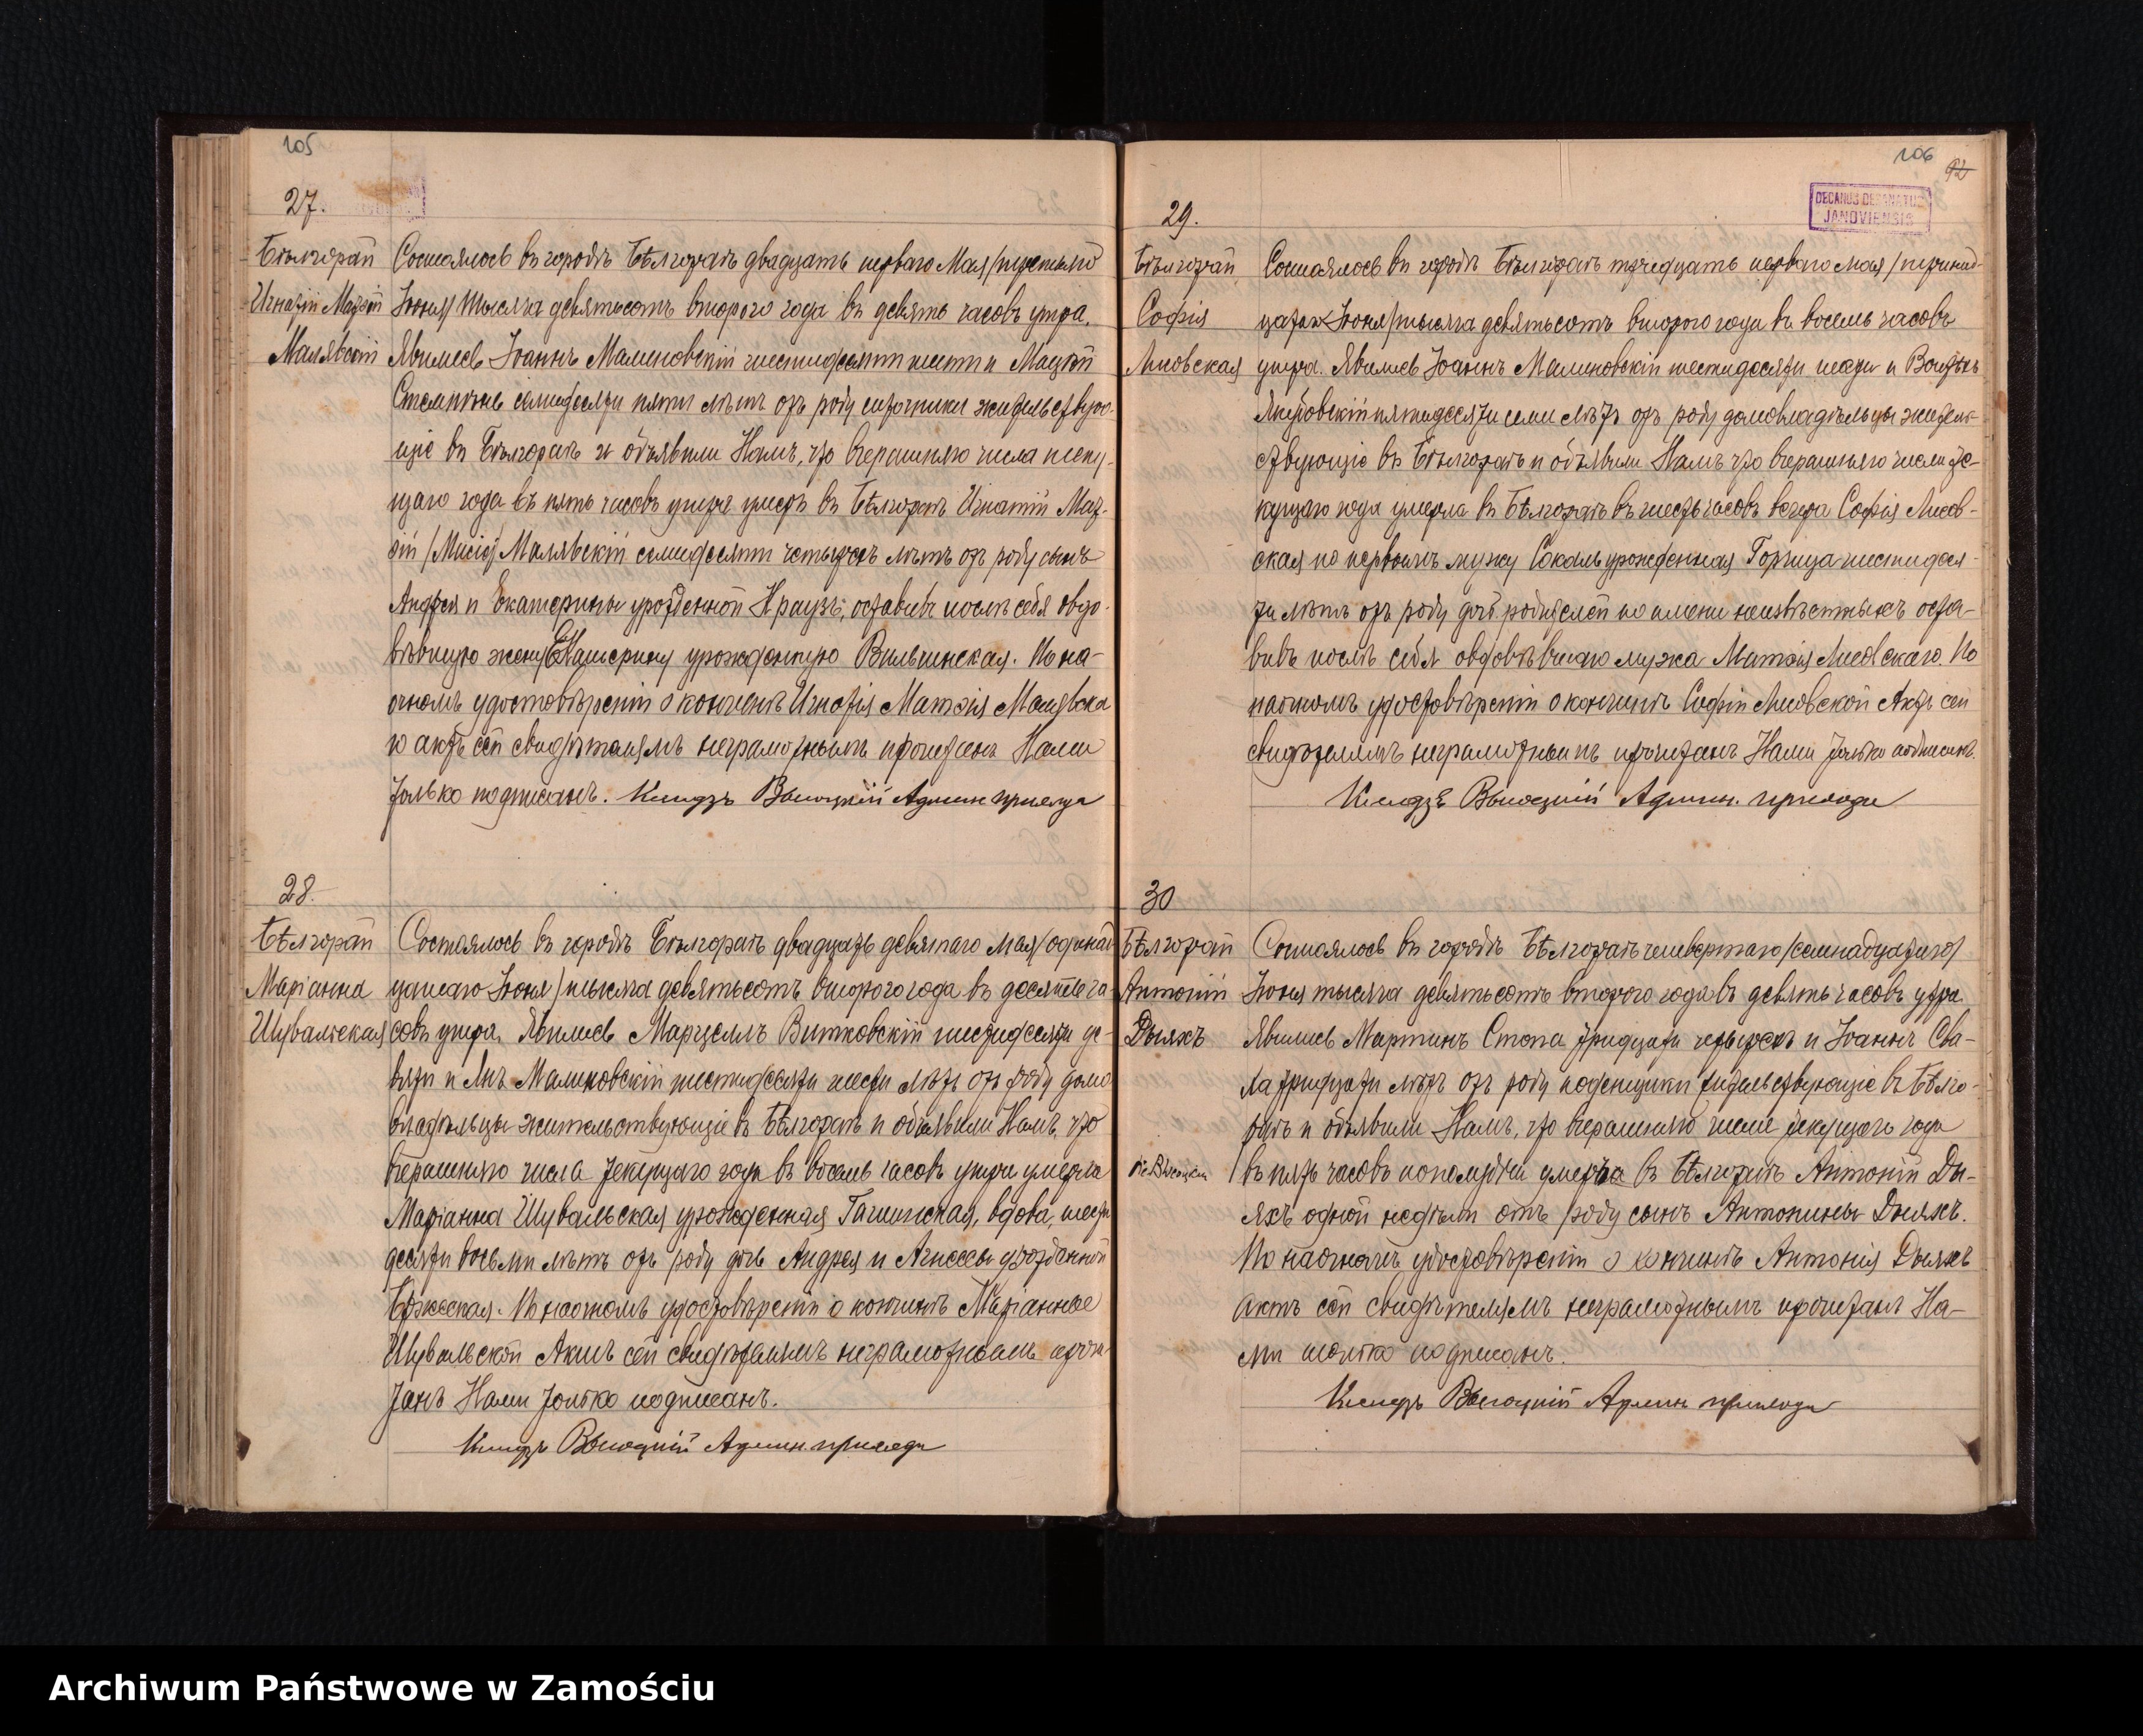 105
27.
Бѣлгорай
Игнатій Маѳій
Малявскій
Состоялось въ городѣ Бѣлгораѣ двадцать перваго Мая /третьяго
Іюня/ тысяча девятьсотъ второго года въ девять часовъ утра.
Явились Іоаннъ Малиновскій шестидесяти шести и
семидесяти пяти лѣтъ отъ роду жительствую-
щіе въ Бѣлгораѣ и объявили Намъ, что вчерашняго числа теку-
щаго года въ пять часовъ утра умеръ въ Бѣлгораѣ Игнатій Маѳ-
ій Малявскій семидесяти четырехъ лѣтъ отъ роду сынъ
Андрея и Екатерины урожденной Краузъ, оставивъ послѣ себя овдо-
вѣвшую жену Катерину урожденную Вильчинская. По на-
очномъ удостовѣреніи о кончинѣ Игнатія Матѳія Малявска
го актъ сей свидѣтелямъ неграмотнымъ прочитанъ Нами
только подписанъ. Ксендзъ Высоцкій Админ. прихода
28.
Бѣлгорай
Маріанна
Шувальская
Состоялось въ городѣ Бѣлгораѣ двадцать девятаго Мая /одинад
цатаго Іюня/ тысяча девятьсотъ второго года въ десять ча
совъ утра. Явились Марцеллъ Витковскій шестидесяти де-
вяти и Янъ Малиновскій шестидесяти шести лѣтъ отъ роду домо
владѣльцы жительствующіе въ Бѣлгораѣ и объявили Намъ, что
вчерашняго числа текущаго года въ восемь часовъ утра умерла
Маріанна Шувальская урожденная вдова, шести
десяти восьми лѣтъ отъ роду дочь Андрея и Агнессы урожденной
По наочномъ удостовѣреніи о кончинѣ Маріанны
Шувальской Актъ сей свидѣтелямъ неграмотнымъ прочи
танъ Нами только подписанъ.
Ксендзъ Высоцкій Админ. прихода
106
92
DECANUS DECANATUS
JANOVIENSIS
29.
Бѣлгорай
Софія
Лисовская
Состоялось въ городѣ Бѣлгораѣ тридцать перваго Мая /тринад-
цатаго Іюня/ тысяча девятьсотъ второго года въ восемь часовъ
утра. Явились Іоаннъ Малиновскій шестидесяти шести и Войтѣхъ
Якубовскій пятидесяти семи лѣтъ отъ роду домовладѣльцы житель-
ствующіе въ Бѣлгораѣ и объявили Намъ что вчерашняго числа те-
кущаго года умерла въ Бѣлгораѣ въ шесть часовъ вечера Софія Лисов-
ская по первомъ мужу Сокалъ урожденная шестидеся-
ти лѣтъ отъ роду дочь родителей по имени неизвѣстныхъ оста-
вивъ послѣ себя овдовѣвшаго мужа Матѳія Лисовскаго. По
наочномъ удостовѣреніи о кончинѣ Софіи Лисовской Актъ сей
свидѣтелямъ неграмотнымъ прочитанъ Нами только подписанъ.
Ксендзъ Высоцкій Админ. прихода
30
Бѣлгорай
Антоній
Дыяхъ
Кс. Высоцкій
Состоялось въ городѣ Бѣлгораѣ четвертаго /семнадцатаго/
Іюня тысяча девятьсотъ второго года въ девять часовъ утра
Явились Мартинъ Стопа тридцати четырехъ и Іоаннъ Сва-
ла тридцати лѣтъ отъ роду поденщики жительствующіе въ Бѣлго-
раѣ и объявили Намъ, что вчерашняго числа текущаго года
въ пять часовъ пополудни умеръ въ Бѣлгораѣ Антоній Ды-
яхъ одной недѣли отъ роду сынъ Антонины Дыяхъ.
По наочномъ удостовѣреніи о кончинѣ Антонія Дыяхъ
Актъ сей свидѣтелямъ неграмотнымъ прочитанъ На-
ми только подписанъ.
Ксендзъ Высоцкій Админ. прихода
Archiwum Państwowe w Zamościu